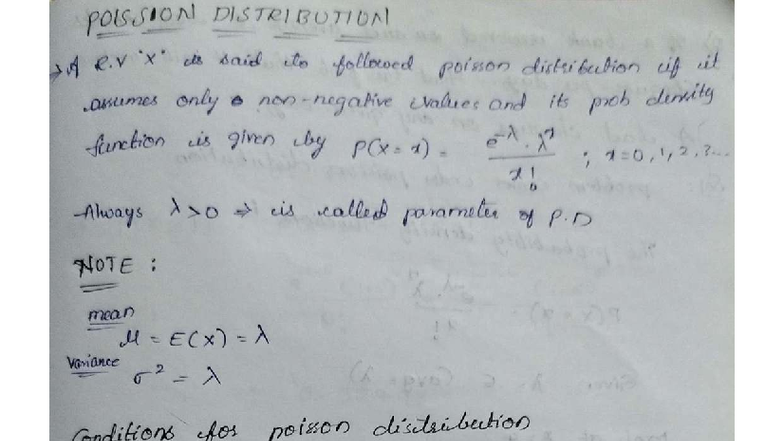 POISSION DISTRIBUTION
→ A R.V 'X' is said to followed poisson distribution if it
assumes only non-negative values and its prob density
function is given by P(X=x) = e^-λ · λ^x / x! ; x=0,1,2,3...
Always λ>0 ⇒ is called parameter of P.D
NOTE :
mean
μ = E(X) = λ
Variance
σ² = λ
Conditions for poisson disctribution